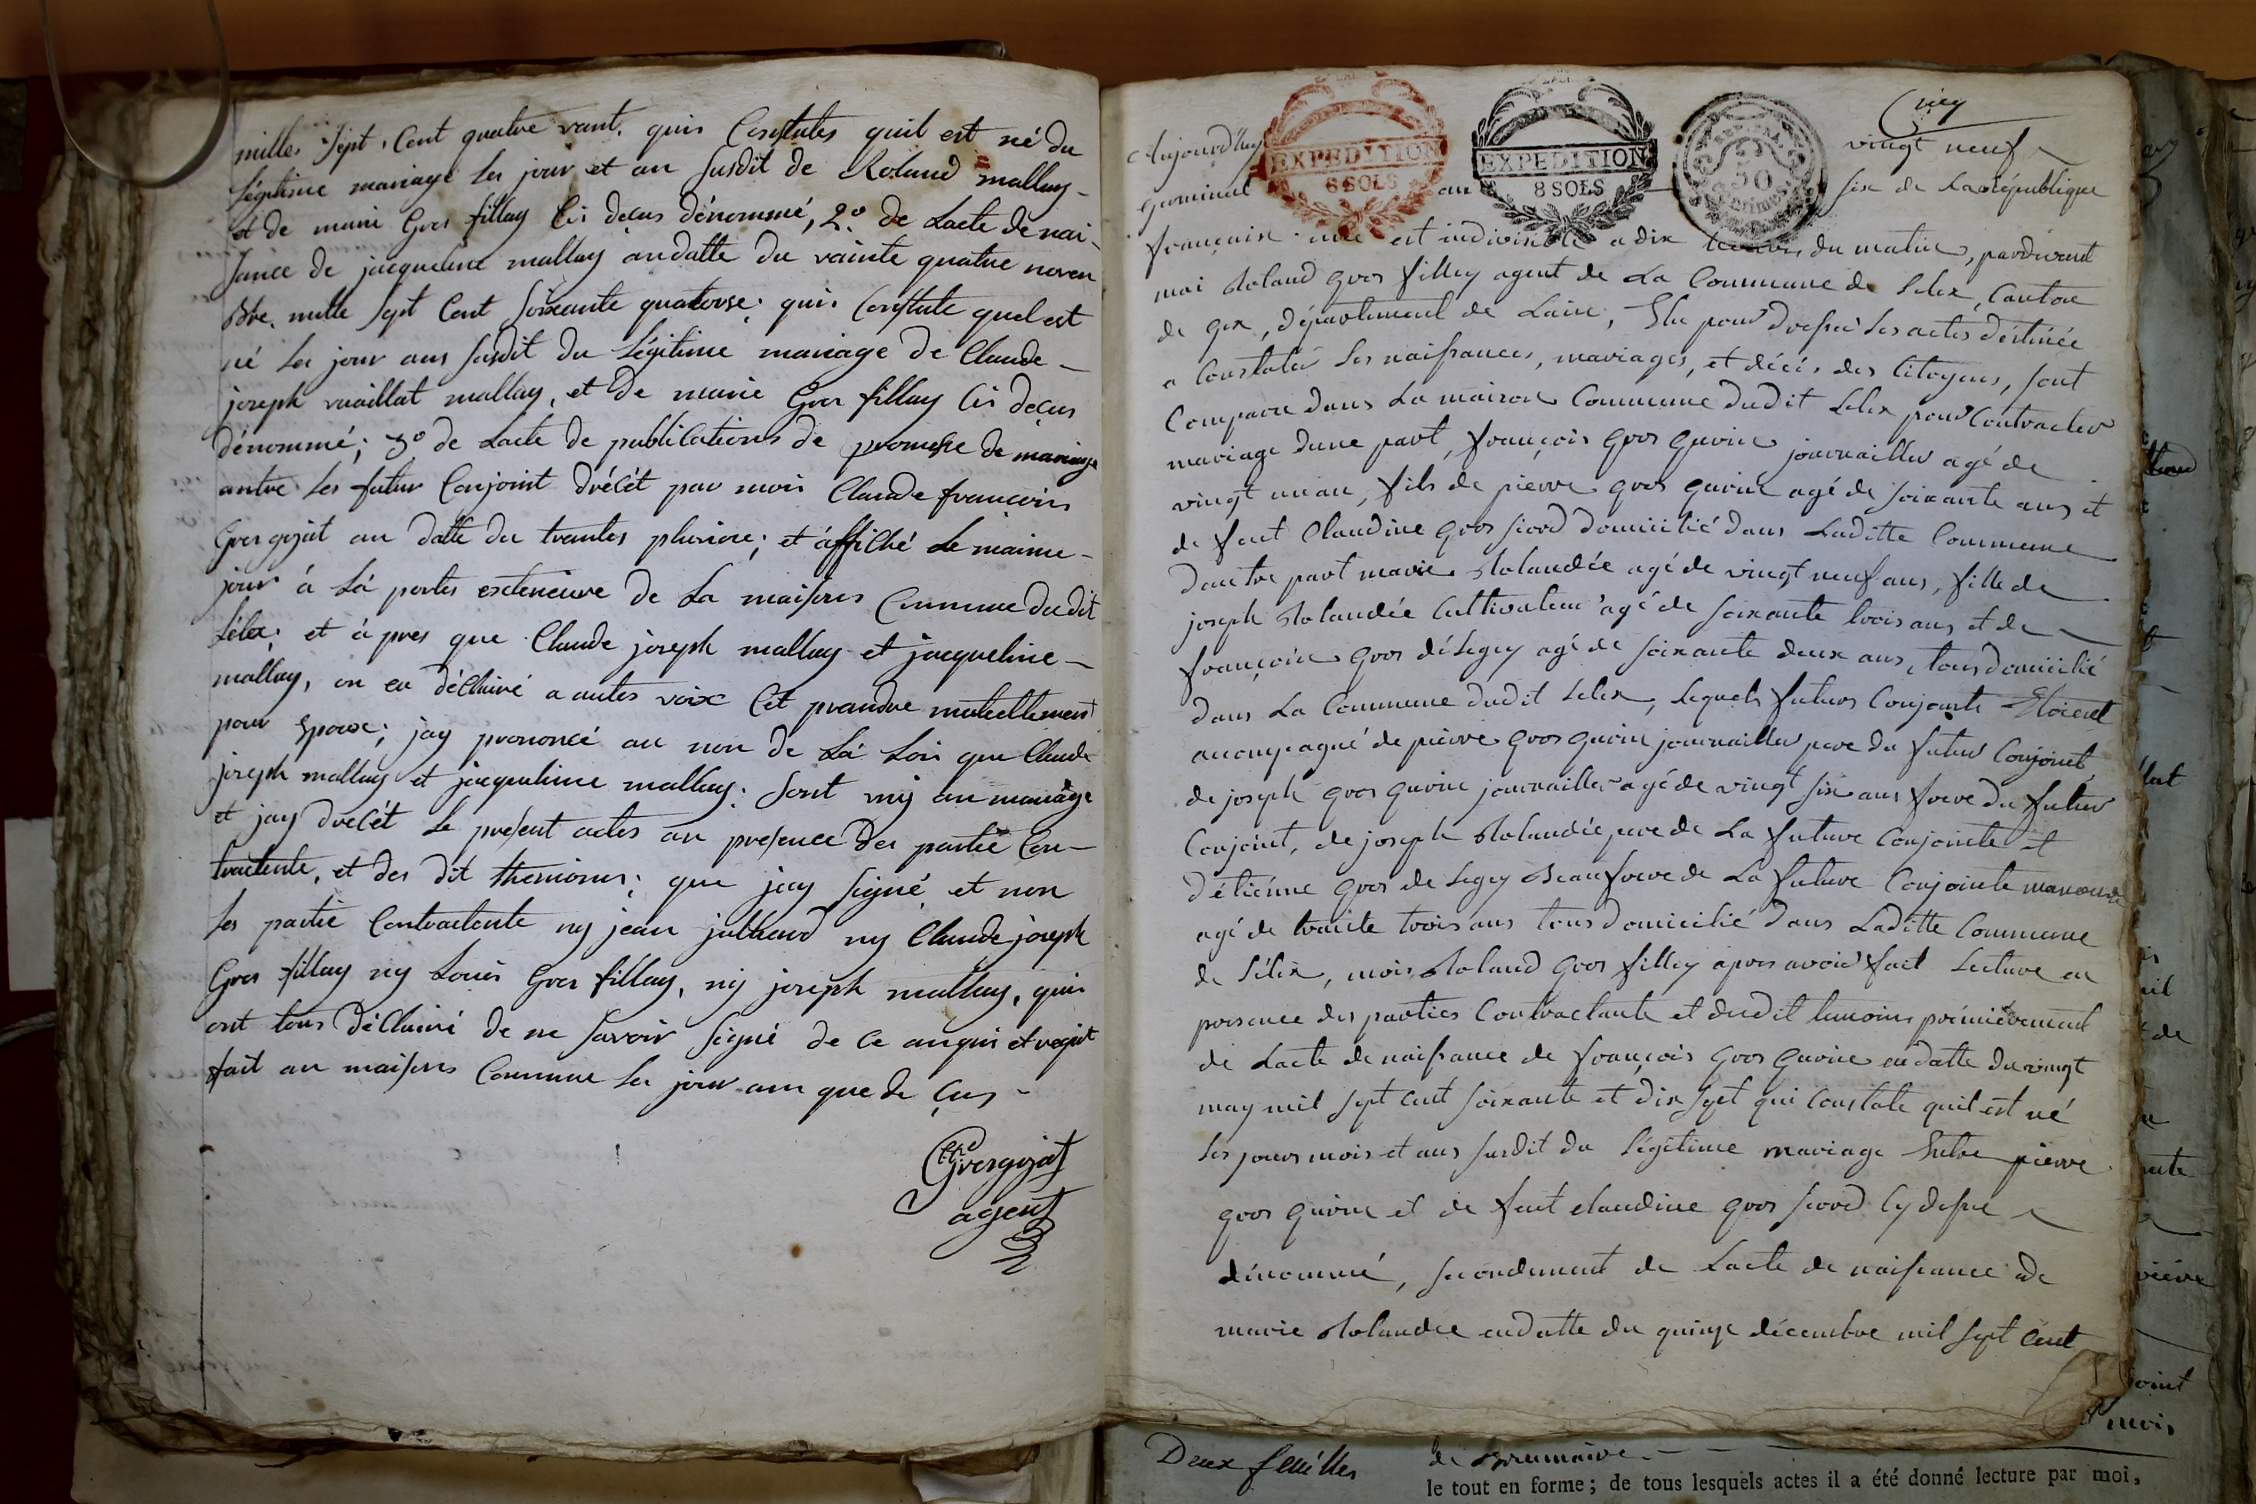 mille Sept Cent quatre vant. quis Constates quil est né du
légitime mariage les jour et an susdit de Roland mallay
et de marie Gros fillay cis deçus dénommé, 2º de Lacte de nai-
sance de jacqueline mallay andatte du vainte quatre noven
bre. mille sept Cent soixante quatorse; quis Constate quel est
né les jour ans susdit du légitime mariage de Claude-
joseph vuaillat mallay, et de marie Gros fillay cis deçus
dénommé; 3º de Lacte de publications de promesse de mariage
antre les futur Conjoint drécét par mois Claude françois
Grosgojat an datte du trantes pluviose; et affiché le maime-
jour à là portes exterieure de La maisons Commune du dit
Lélex; et à pres que Claude joseph mallay et jacqueline-
mallay, on eu déClairé a autes voix Cet prandre mutuellement
pour Epoux; jay prononcé au non de Là Loi que Claude
joseph mallay et jacqueline mallay: sont unj an mariage
et jay drécét le présent actes an presence des partie Con-
tractente, et des dit themoins; que jay signé et non
les partie Contractente ny jean juliand ny Claude joseph
Gros fillay ny Louis Gros fillay, ny joseph mallay, quis
ont tous déClairé de ne savoir signé de ce anquis et requit
fait an maisons Commune les jour ans que de çus -
Grosgojat
agent
vingt neuf
Aujourd'huy
EXPEDITION
6 SOLS
EXPEDITION
8 SOLS
50
germinal an six de La république
française une et indivisible a dix heures du matin, pardevant
moi Roland gros filley agent de La Commune de Lelex, Canton
de gex, département de Lain, Elu pour dressé les actes déstinée
a Constater les naissances, mariages, et décés des Citoyens, sont
Comparu dans La maison Commune dudit Lelex pour Contracter
mariage dune part, françois gros gurin journailler agé de
vingt un an, fils de pierre gros gurin agé de soixante ans et
de feut Claudine gros siord domicilié dans Laditte Commune
dautre part marie Rolandée agé de vingt neuf ans, fille de
joseph Rolandée Cultivateur agé de soixante trois ans et de
françoise gros déLegey agé de soixante deux ans, tous domicilié
dans La Commune dudit Lelex, lequels futurs Conjoints Etoient
accompagné de pierre gros gurin journailler pere du futur Conjoint,
de joseph gros gurin journailler agé de vingt six ans frere du futur
Conjoint, de joseph Rolandée pere de La future Conjointe et
détienne gros de Legey Beaufrere de La future Conjointe
agé de trante trois ans tous domicilié dans Laditte Commune
de Lélex, mois Roland gros filley apres avoir fait Lecture en
presence des parties Contractante et dudit temoins premièrement
de Lacte de naissance de françois gros gurin en datte du vingt
may mil sept cent soixante et dix sept qui Constate quil est né
les jours mois et ans susdit du légitime mariage Entre pierre
gros gurin et de feut claudine gros siord cy dessu
dénommé, secondement de Lacte de naissance de
marie Rolandée en datte du quinze décembre mil sept cent
Deux feuilles
de Brumaire
le tout en forme; de tous lesquels actes il a été donné lecture par moi,
oint
mois